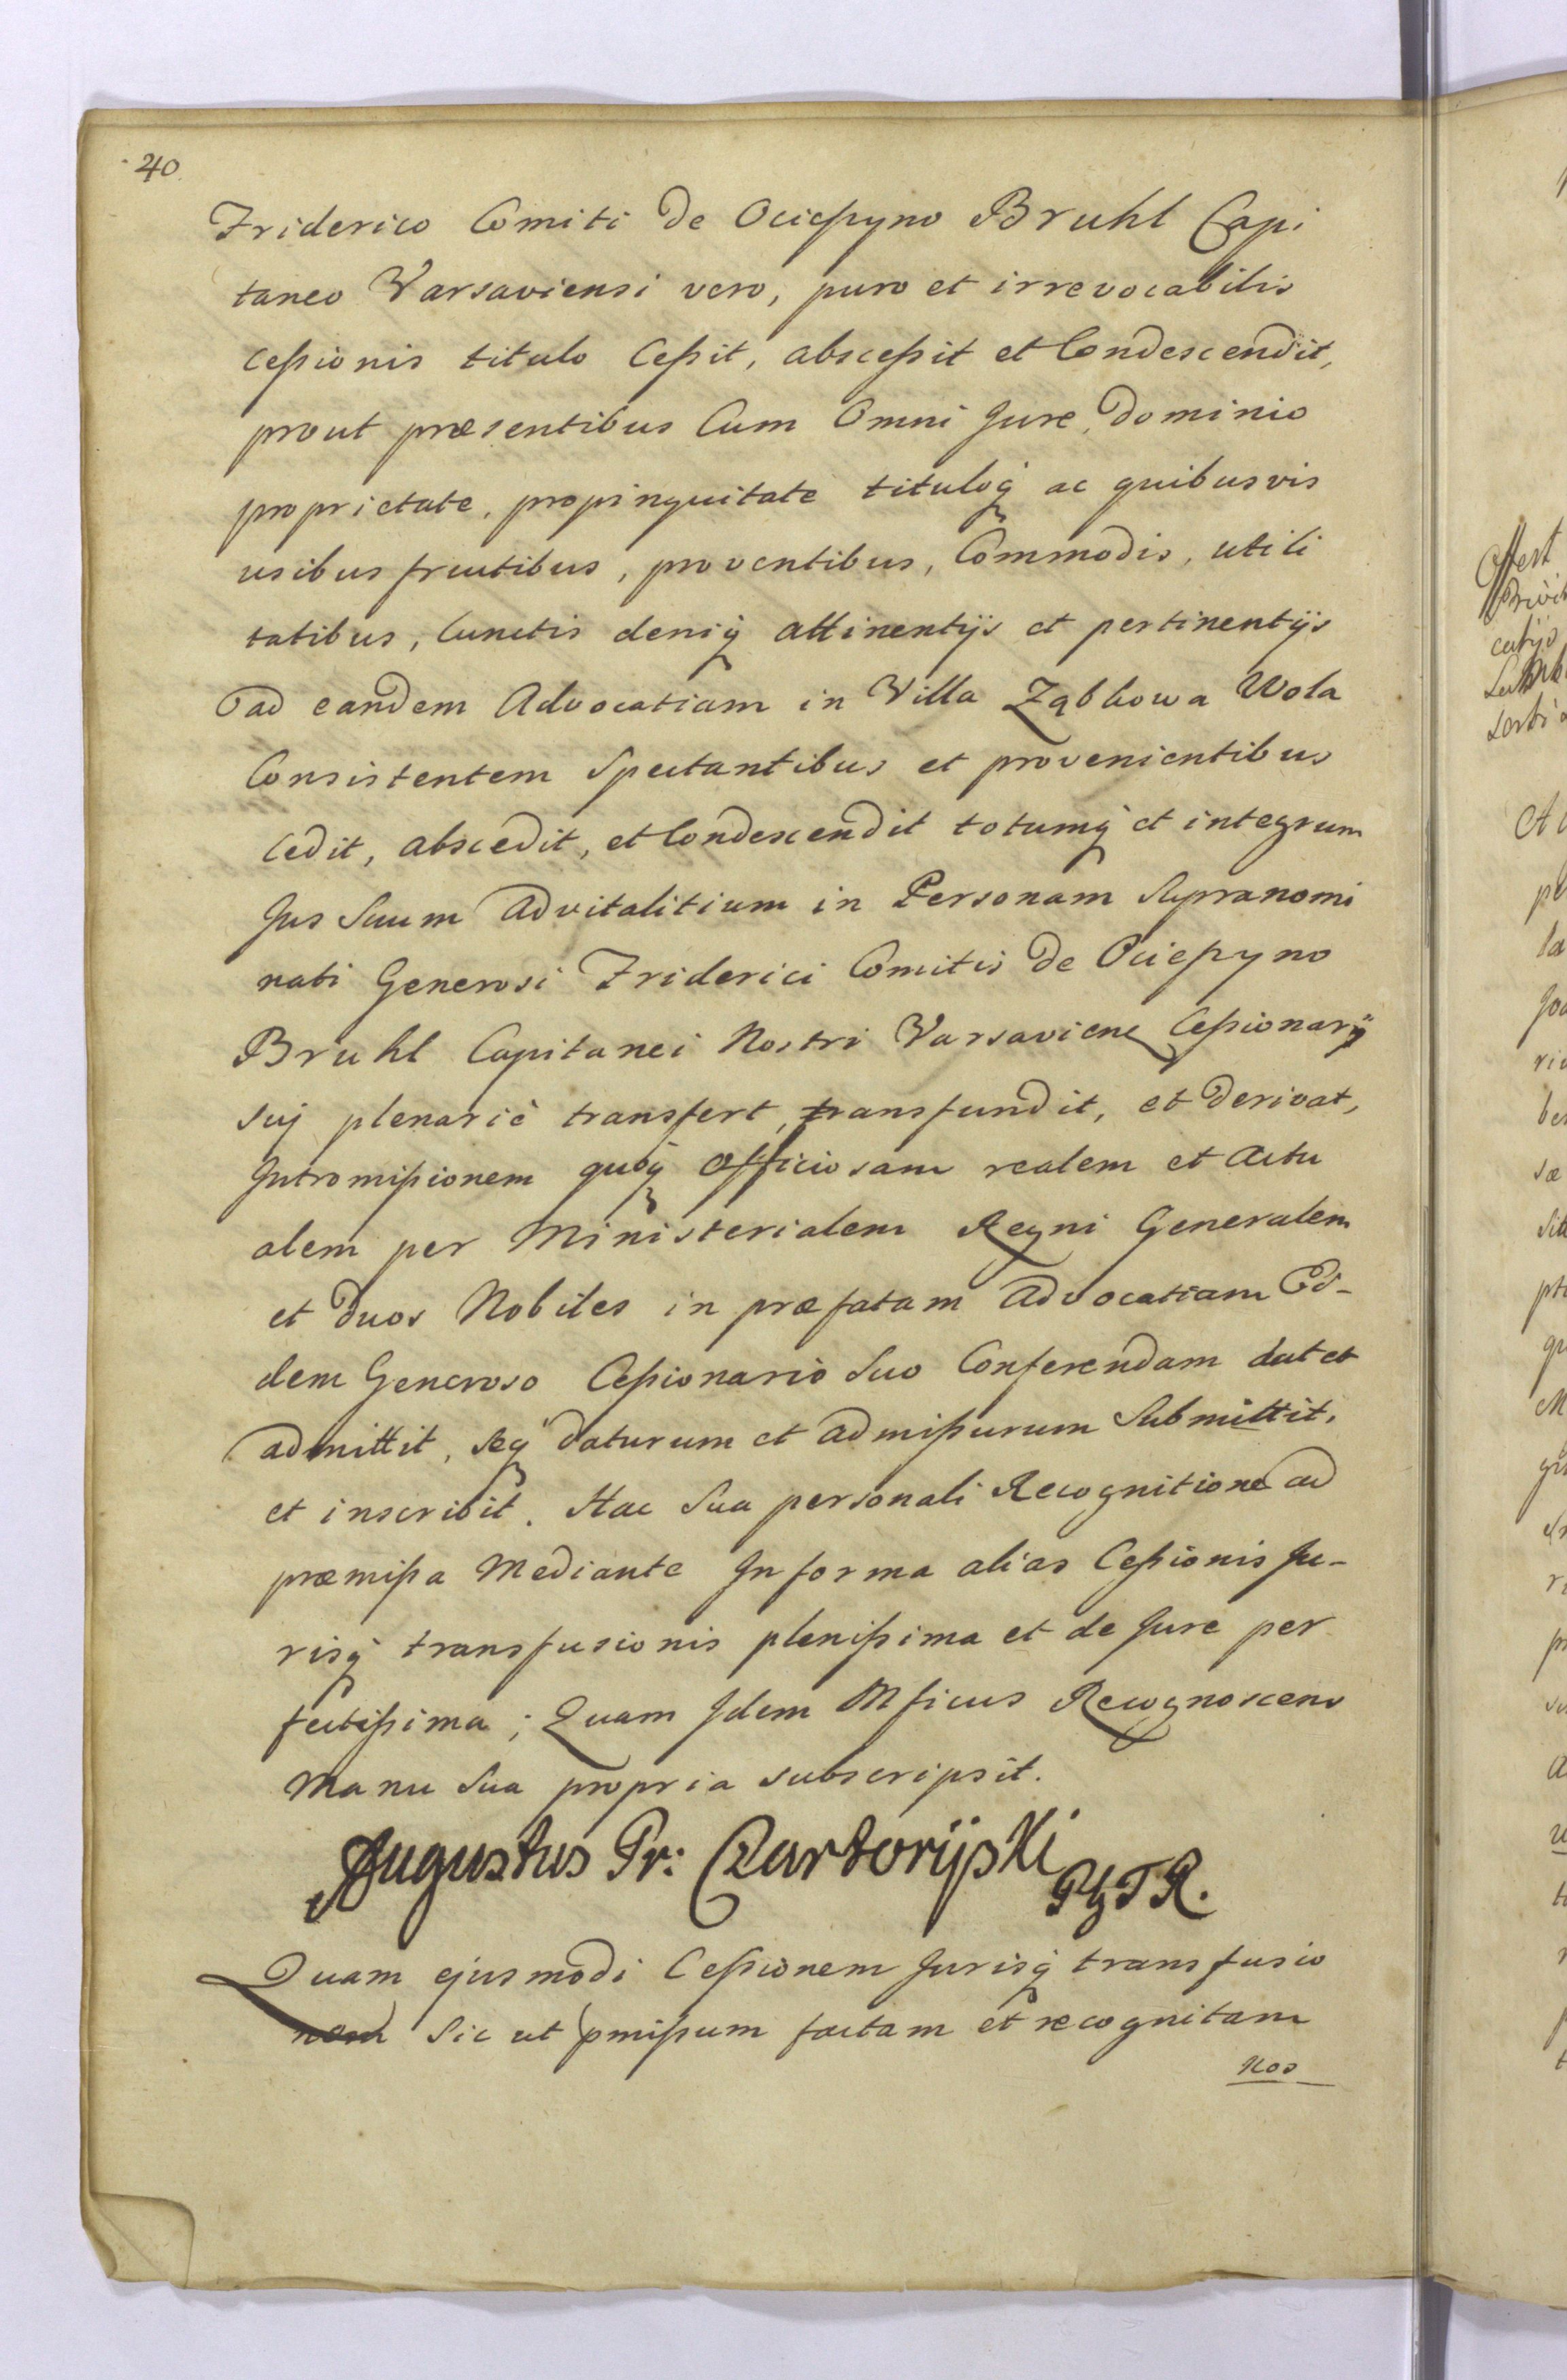 40
Friderico Comiti de Ocieszyno Bruhl Capi
taneo Varsaviensi vero, puro et irrevocabilis
cessionis titulo Cessit, abscessit et Condescendit,
prout præsentibus Cum Omni Jure, dominio
proprietate, propinquitate tituloq ac quibusvis
usibus fructibus, proventibus, Commodis, utili
tatibus, Cunctis deniq attinentijs et pertinentijs
ad eandem Advocatiam in Villa Ząbkowa Wola
Consistentem Spectantibus et provenientibus
cedit, abscedit, et Condescendit totumq et integrum
Jus Suum Advitalitium in Personam Supranomi
nati Generosi Friderici Comitis de Ocieszyno
Bruhl Capitanei Nostri Varsaviens Cessionarij
suj plenariè transfert, transfundit, et derivat,
Intromissionem quoq officiosam realem et actu
alem per Ministerialem Regni Generalem
et duos Nobiles in præfatam Advocatiam Ei-
dem Generoso Cessionario Suo Conferendam dat et
admittit, seq daturum et admissurum Submittit,
et inscribit. Hac Sua personali Recognitione ad
præmissa Mediante In forma alias Cessionis Ju-
risq transfusionis plenissima et de Jure per
fectissima; Quam Idem Mficus Recognoscens
Manu Sua propria subscripsit.
Augustus Pr: Czartoryiski
Quam ejusmodi Cessionem Jurisq transfusio
nem Sic ut pmissum factam et recognitam
Nos